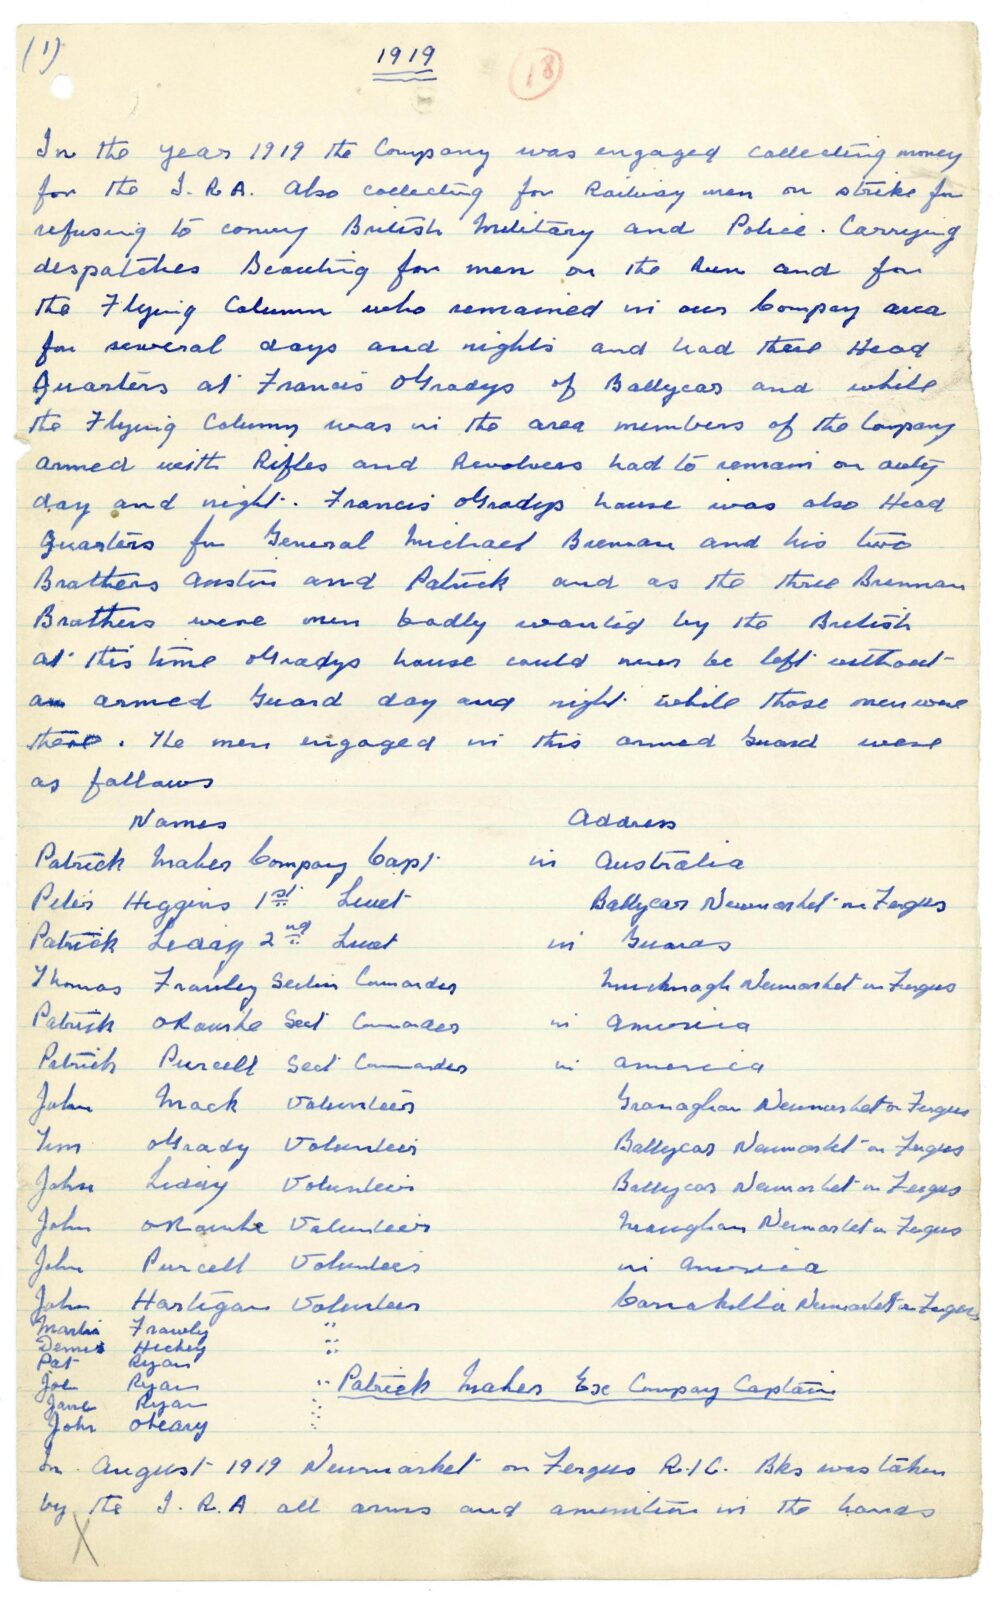 (1)
1919
18
In the year 1919 the Company was engaged collecting money
for the I.R.A. also collecting for Railway men on strike for
refusing to convey British Military and Police. Carrying
despatches Scouting for men on the Run and for
the Flying Column who remained in our Company area
for several days and nights and had there Head
Quarters at Francis OGradys of Ballycar and while
the Flying Column was in the area members of the Company
armed with Rifles and Revolvers had to remain on duty
day and night. Francis OGradys house was also Head
Quarters for General Michael Brennan and his two
Brothers Austin and Patrick and as the three Brennan
Brothers were men badly wanted by the British
at this time OGradys house could never be left without
an armed Guard day and night while those men were
there. The men engaged in this armed Guard were
as follows
Names Address
Patrick Maher Company Capt. in Australia
Peter Higgins 1st Lieut Ballycar Newmarket on Fergus
Patrick Liddy 2nd Lieut in Guards
Thomas Frawley Section Comander Newmarket on Fergus
Patrick ORourke Sect Comander in America
Patrick Purcell Sect Comander in america
John Mack Volunteer Granaghan Newmarket on Fergus
Tim OGrady Volunteer Ballycar Newmarket on Fergus
John Liddy Volunteer Ballycar Newmarket on Fergus
John ORourke Volunteer Newmarket on Fergus
John Purcell Volunteer in America
John Hartigan Volunteer Newmarket on Fergus
Martin Frawley "
Denis Hickey "
Pat Ryan "
Joe Ryan " Patrick Maher Ex Company Captain
Ryan "
John OLeary "
In August 1919 Newmarket on Fergus R.I.C. Bks was taken
by the I.R.A all arms and amonition in the hands
X